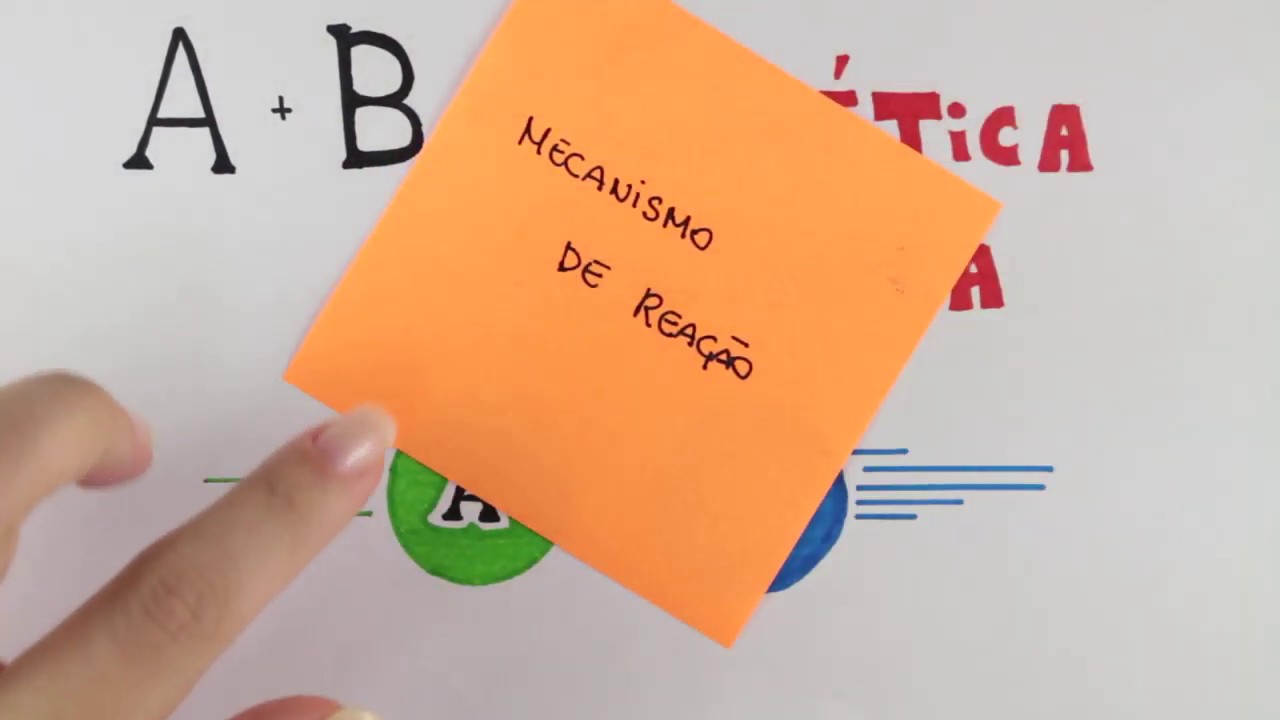 A + B
ÉTICA
A
MECANISMO
DE REAÇÃO
A